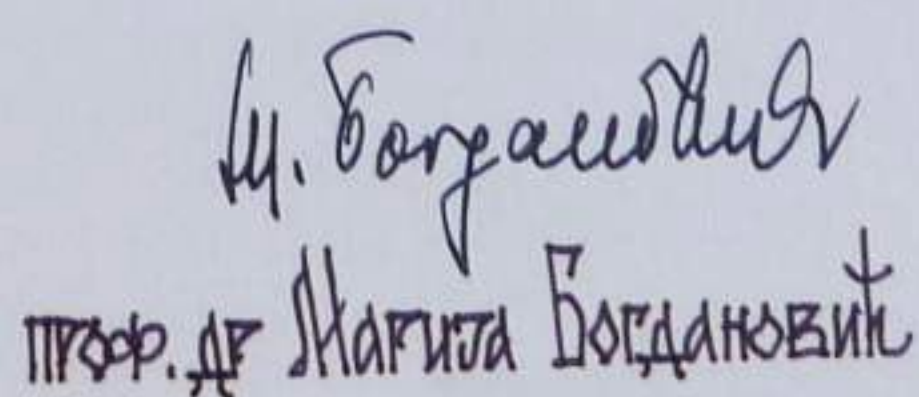 М. Богдановић
проф. др Марија Богдановић